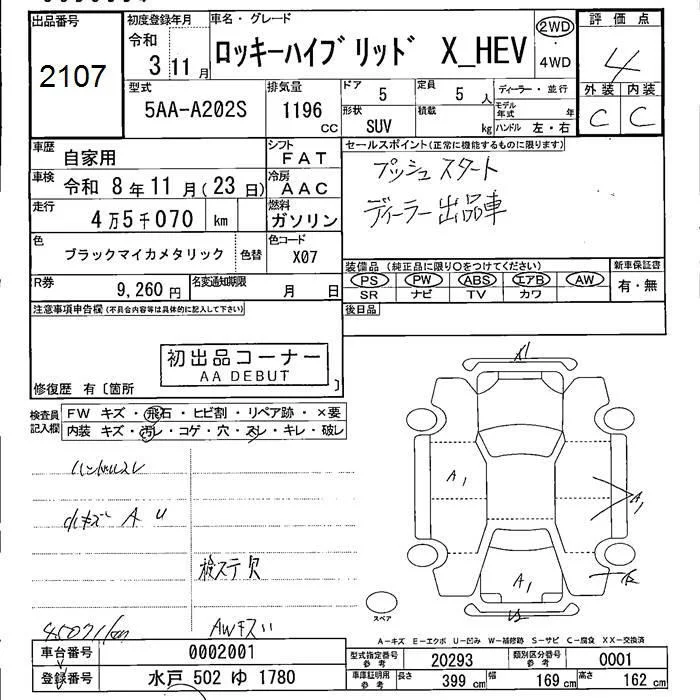 出品番号
2107
初度登録年月
令和
3 11月
車名・グレード
ロッキーハイブリッド X_HEV
2WD
・
4WD
評価点
4
外装 内装
C C
型式
5AA-A202S
排気量
1196
cc
ドア
5
定員
5 人
形状
SUV
積載
kg
ディーラー・並行
モデル年式 年
ハンドル 左・右
車歴
自家用
シフト
FAT
車検
令和 8年11月(23日)
冷房
AAC
走行
4万5千070 km
燃料
ガソリン
色
ブラックマイカメタリック
色替
色コード
X07
R券
9,260 円
名変通知期限
月 日
セールスポイント(正常に機能するものに限ります)
プッシュスタート
ディーラー出品車
装備品(純正品に限り○をつけてください)
PS PW ABS エアB AW
SR ナビ TV カワ
新車保証書
有・無
後日品
注意事項申告欄(不具合内容等は具体的に記入して下さい)
初出品コーナー
AA DEBUT
修復歴 有〔箇所 〕
検査員
記入欄
FW キズ・飛石・ヒビ割・リペア跡・×要
内装 キズ・汚レ・コゲ・穴・スレ・キレ・破レ
ハンドルスレ
小キズ A U
検ステ欠
45071km
AWキズ
X1
A1
A1
A1
スペア
A-キズ E-エクボ U-凹み W-補修跡 S-サビ C-腐食 XX-交換済
車台番号
0002001
登録番号
水戸 502 ゆ 1780
型式指定番号
参考
20293
類別区分番号
参考
0001
車庫証明用
参考
長さ
399 cm
幅
169 cm
高さ
162 cm